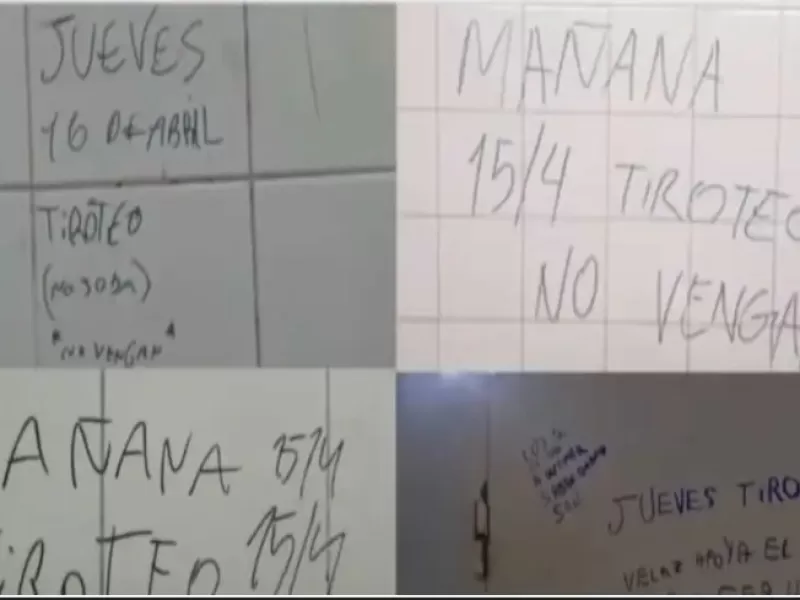 JUEVES
16 DE ABRIL
TIROTEO
(NO JODA)
"NO VENGAN"
MAÑANA
15/4 TIROTEO
NO VENGA
AÑANA 15/4
TIROTEO 15/4
JUEVES TIRO
VELAZ APOYA EL